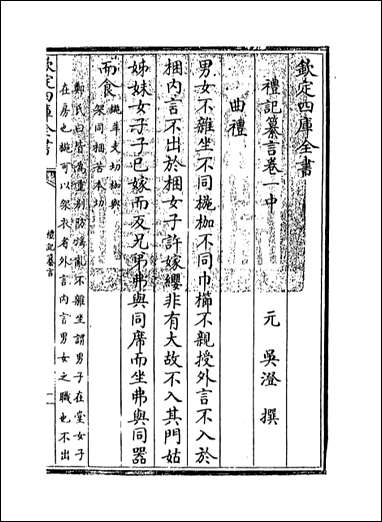 欽定四庫全書
禮記纂言卷一中
元 吳澄 撰
曲禮
男女不雜坐不同椸枷不同巾櫛不親授外言不入於
梱内言不出於梱女子許嫁纓非有大故不入其門姑
姊妹女子子已嫁而反兄弟弗與同席而坐弗與同器
而食椸羊支切枷與
架同梱苦本切
鄭氏曰皆為重别防淫亂不雜坐謂男子在堂女子
在房也椸可以架衣者外言内言男女之職也不出
欽定四庫全書
禮記纂言